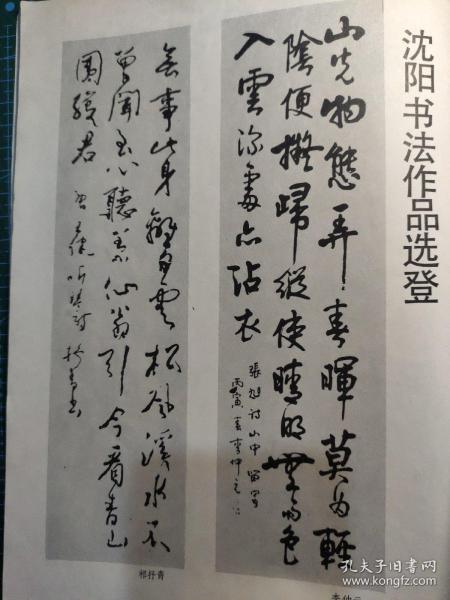 沈阳书法作品选登
山光物態弄春暉莫為輕
陰便擬歸縱使晴明無雨色
入雲深處亦沾衣
張旭詩山中留客
丙寅春李仲元
李仲元
無事此身離白雲松風溪水不
曾聞至心聽著仙翁引今看青山
圍繞君
王建听琴詩 抒青书
祁抒青
孔夫子旧书网